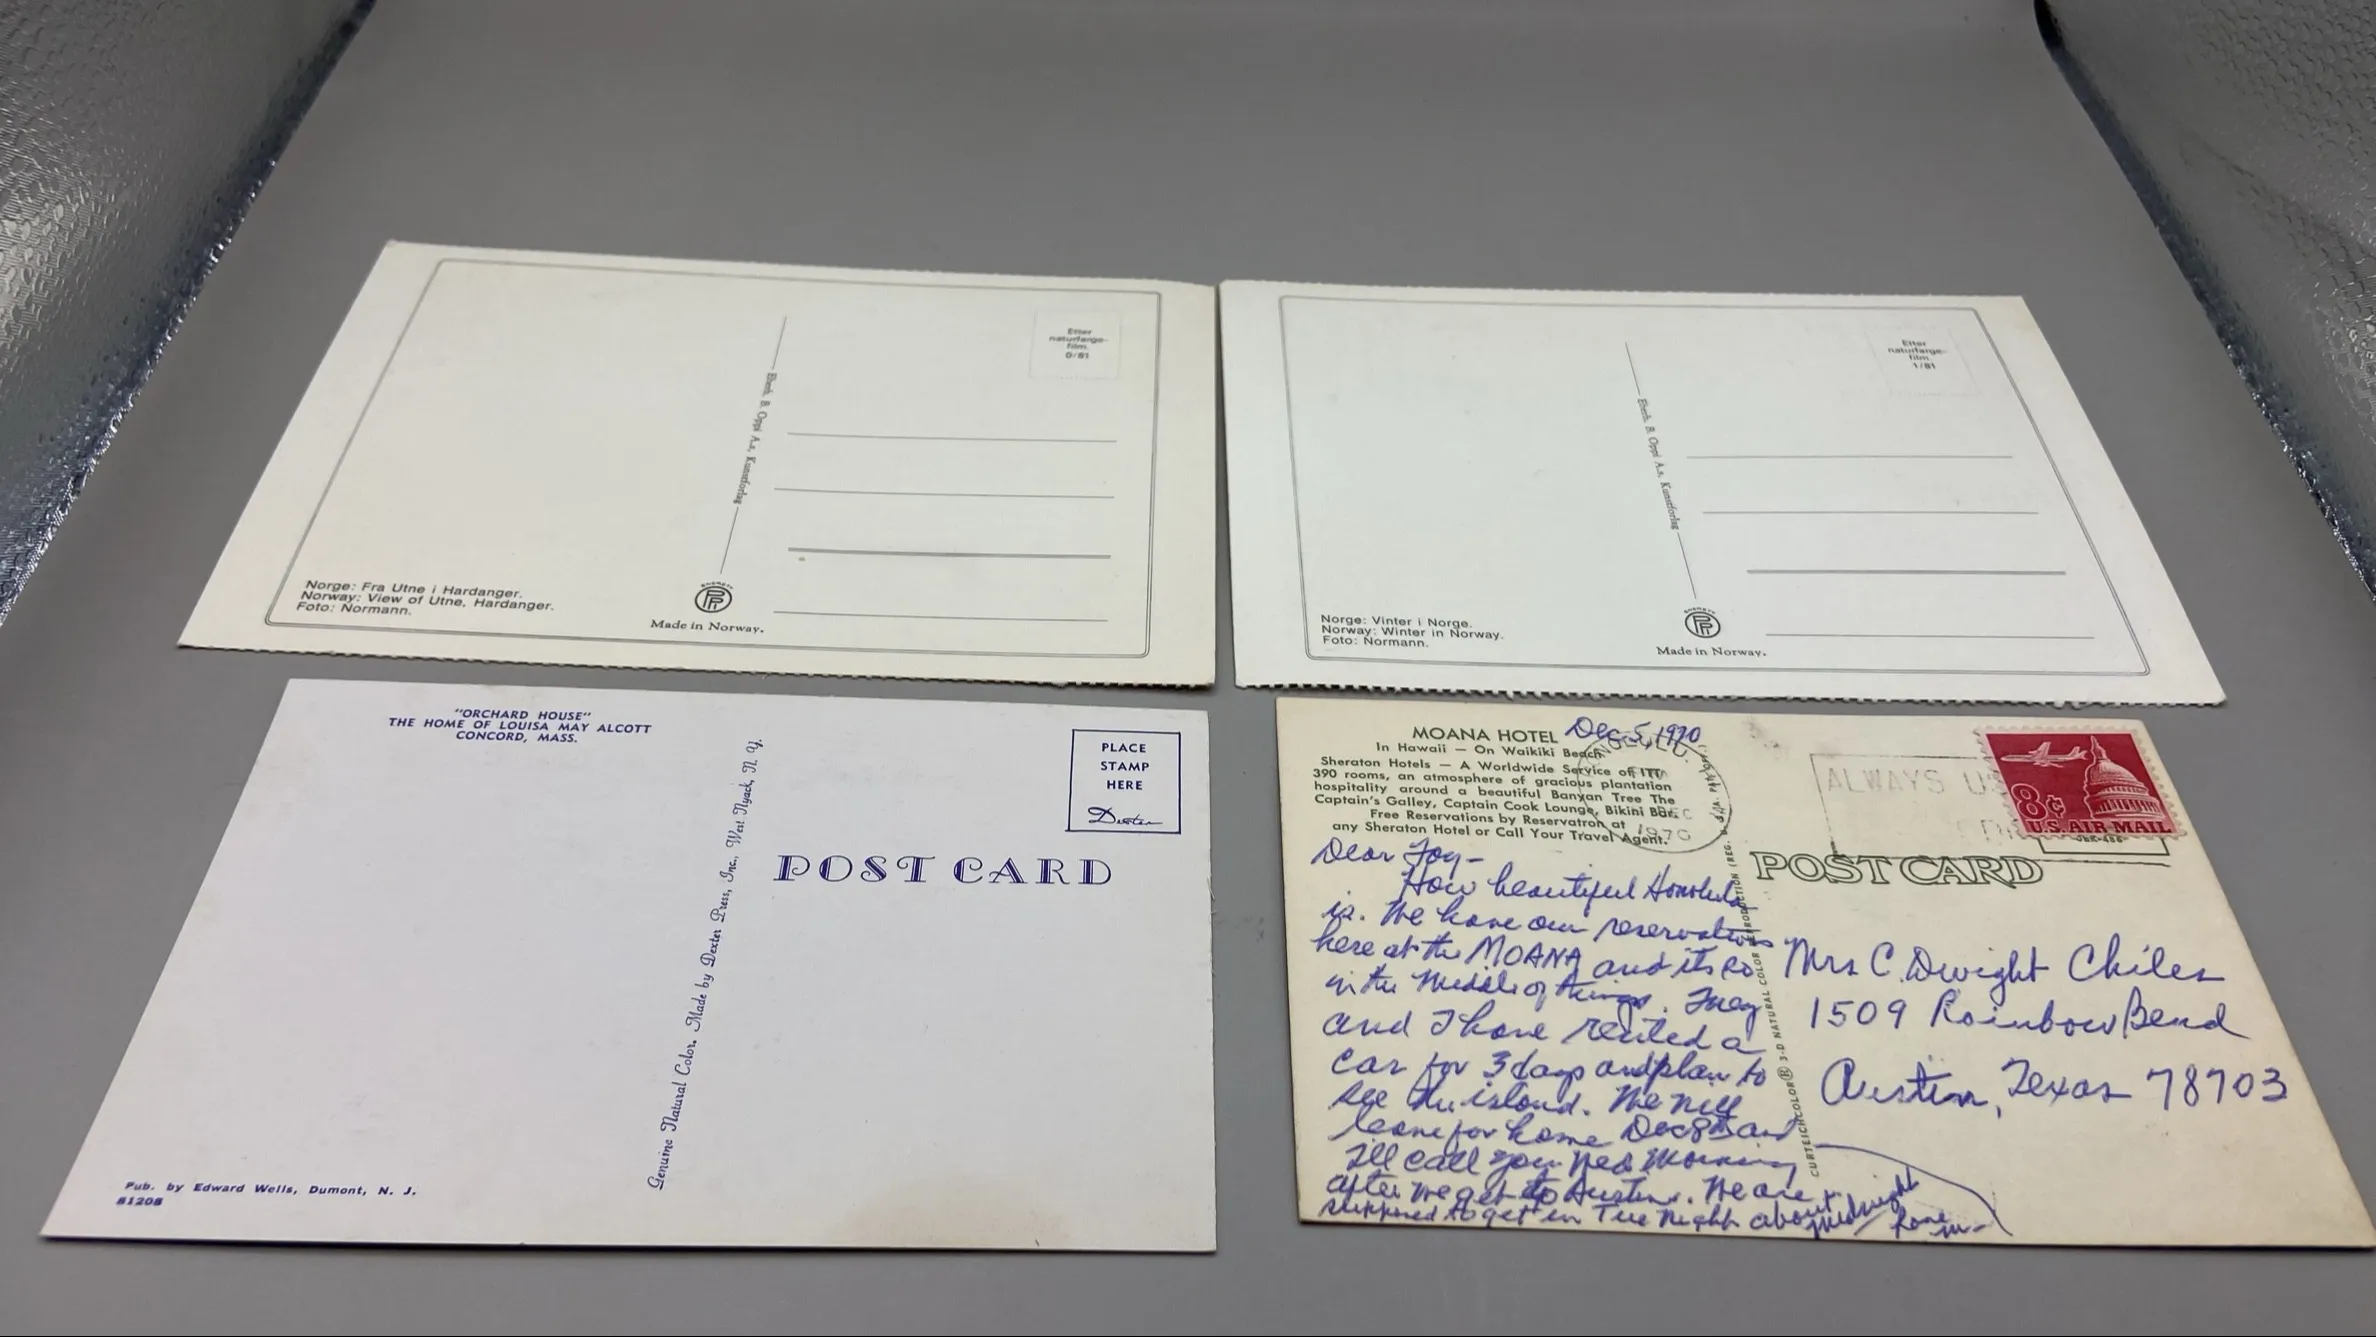 Etter
naturfarge-
film.
0/81
Eberh. B. Oppi A.s, Kunstforlag
Norge: Fra Utne i Hardanger.
Norway: View of Utne, Hardanger.
Foto: Normann.
Made in Norway.
Etter
naturfarge-
film.
1/81
Eberh. B. Oppi A.s, Kunstforlag
Norge: Vinter i Norge.
Norway: Winter in Norway.
Foto: Normann.
Made in Norway.
"ORCHARD HOUSE"
THE HOME OF LOUISA MAY ALCOTT
CONCORD, MASS.
PLACE
STAMP
HERE
Dexter
POST CARD
Genuine Natural Color. Made by Dexter Press, Inc., West Nyack, N. Y.
Pub. by Edward Wells, Dumont, N. J.
81208
MOANA HOTEL
Dec. 5, 1970
In Hawaii — On Waikiki Beach.
Sheraton Hotels — A Worldwide Service of ITT
390 rooms, an atmosphere of gracious plantation
hospitality around a beautiful Banyan Tree The
Captain's Galley, Captain Cook Lounge, Bikini Bar.
Free Reservations by Reservatron at
any Sheraton Hotel or Call Your Travel Agent.
DEC
1970
ALWAYS
8¢
U.S. AIR MAIL
POST CARD
CURTEICHCOLOR® 3-D NATURAL COLOR REPRODUCTION (REG. U.S.A. PAT. OFF.)
Dear
How beautiful Honolulu
is. We have our reservations
here at the MOANA and its so
in the middle of things.
and I have rented a
car for 3 days and plan to
see the island. We will
leave for home Dec 8th and
I'll call you Wed Morning
after we get to Austin. We are
supposed to get in Tue Night about midnight
Love
Mrs C. Dwight Chiles
1509 Rainbow Bend
Austin, Texas 78703